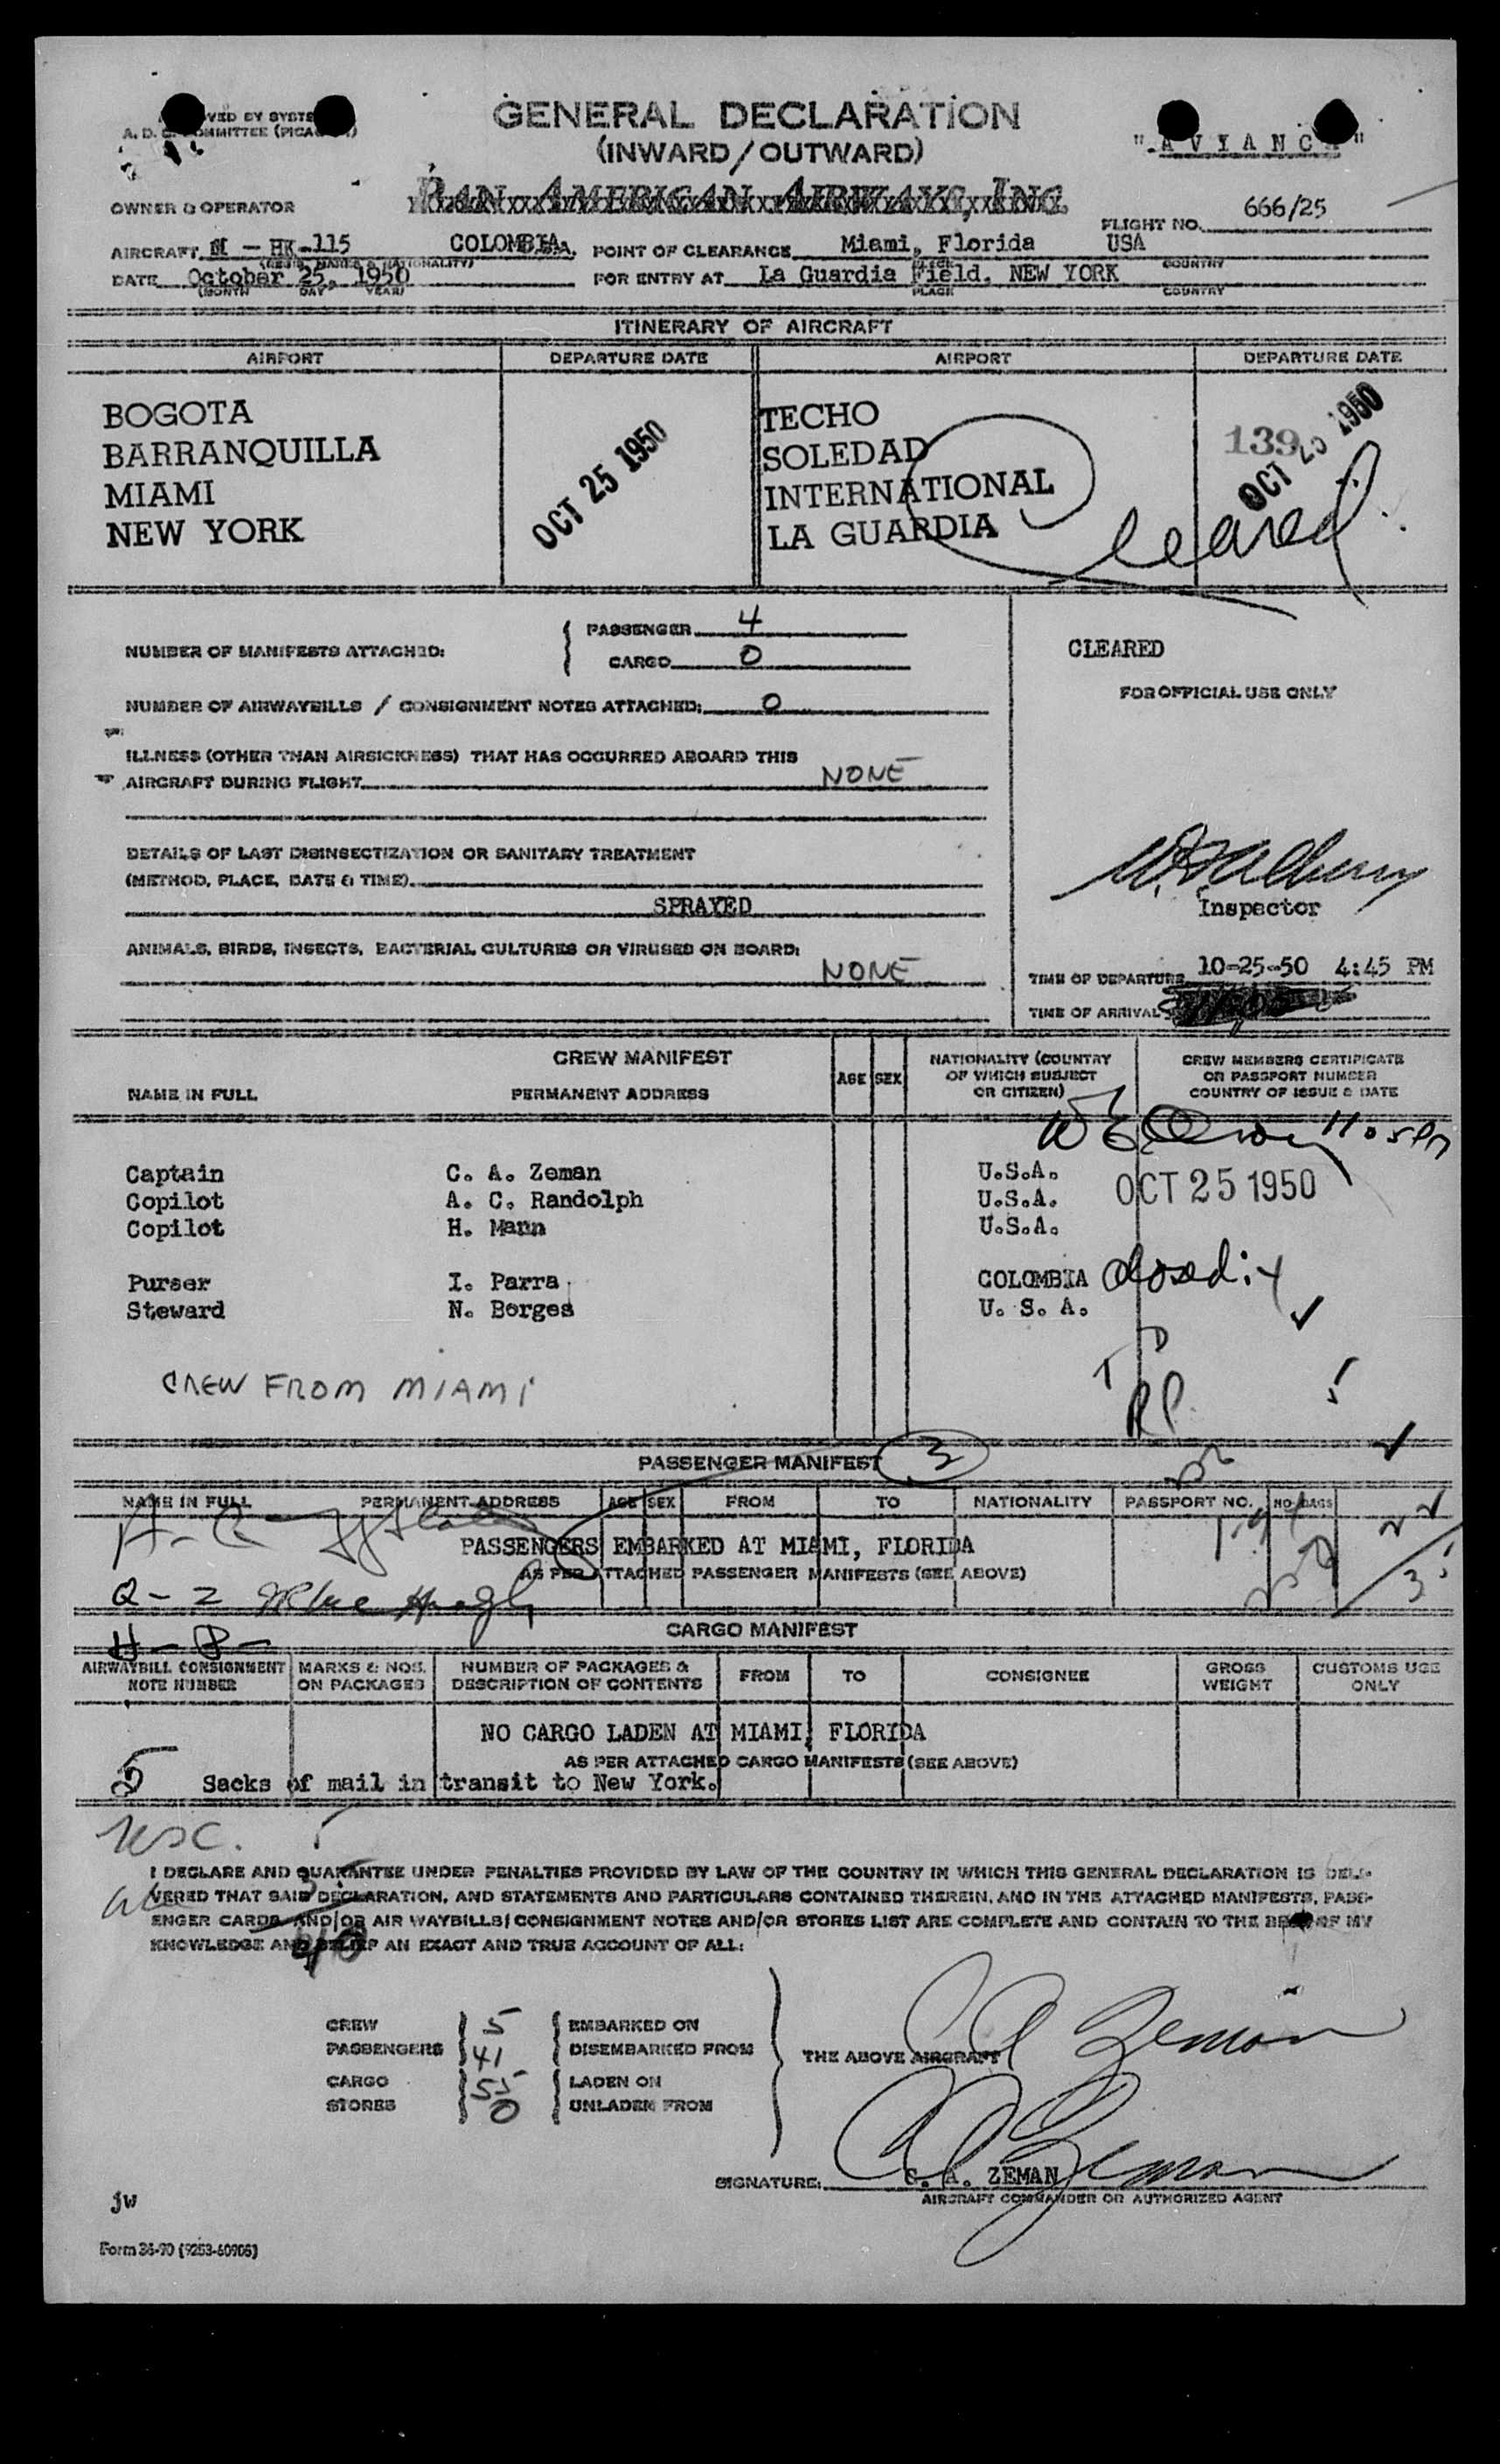 GENERAL DECLARATION
(INWARD/OUTWARD)
"AVIANCA"
PAN AMERICAN AIRWAYS, INC.
OWNER & OPERATOR
FLIGHT NO. 666/25
AIRCRAFT M - HK-115 COLOMBIA POINT OF CLEARANCE Miami, Florida USA
DATE October 25, 1950 FOR ENTRY AT La Guardia Field, NEW YORK
(MONTH DAY YEAR) PLACE COUNTRY
ITINERARY OF AIRCRAFT
AIRPORT DEPARTURE DATE AIRPORT DEPARTURE DATE
BOGOTA TECHO
BARRANQUILLA SOLEDAD 139
MIAMI INTERNATIONAL
NEW YORK LA GUARDIA
OCT 25 1950 OCT 25 1950
Cleared
NUMBER OF MANIFESTS ATTACHED: PASSENGER 4
CARGO 0
CLEARED
FOR OFFICIAL USE ONLY
NUMBER OF AIRWAYBILLS / CONSIGNMENT NOTES ATTACHED: 0
ILLNESS (OTHER THAN AIRSICKNESS) THAT HAS OCCURRED ABOARD THIS
AIRCRAFT DURING FLIGHT NONE
DETAILS OF LAST DISINSECTIZATION OR SANITARY TREATMENT
(METHOD, PLACE, DATE & TIME)
SPRAYED
Inspector
ANIMALS, BIRDS, INSECTS, BACTERIAL CULTURES OR VIRUSES ON BOARD:
NONE
TIME OF DEPARTURE 10-25-50 4:45 PM
TIME OF ARRIVAL
CREW MANIFEST
NAME IN FULL PERMANENT ADDRESS AGE SEX
NATIONALITY (COUNTRY
OF WHICH SUBJECT
OR CITIZEN)
CREW MEMBERS CERTIFICATE
OR PASSPORT NUMBER
COUNTRY OF ISSUE & DATE
Captain C. A. Zeman U.S.A.
Copilot A. C. Randolph U.S.A. OCT 25 1950
Copilot H. Mann U.S.A.
Purser I. Parra COLOMBIA
Steward N. Borges U. S. A.
CREW FROM MIAMI
PASSENGER MANIFEST 3
NAME IN FULL PERMANENT ADDRESS AGE SEX FROM TO NATIONALITY PASSPORT NO. NO. BAGS
PASSENGERS EMBARKED AT MIAMI, FLORIDA
AS PER ATTACHED PASSENGER MANIFESTS (SEE ABOVE)
CARGO MANIFEST
AIRWAYBILL CONSIGNMENT NOTE NUMBER
MARKS & NOS. ON PACKAGES
NUMBER OF PACKAGES & DESCRIPTION OF CONTENTS
FROM TO CONSIGNEE
GROSS WEIGHT
CUSTOMS USE ONLY
NO CARGO LADEN AT MIAMI, FLORIDA
AS PER ATTACHED CARGO MANIFESTS (SEE ABOVE)
5 Sacks of mail in transit to New York.
I DECLARE AND GUARANTEE UNDER PENALTIES PROVIDED BY LAW OF THE COUNTRY IN WHICH THIS GENERAL DECLARATION IS DELI-
VERED THAT SAID DECLARATION, AND STATEMENTS AND PARTICULARS CONTAINED THEREIN, AND IN THE ATTACHED MANIFESTS, PASS-
ENGER CARDS, AND/OR AIR WAYBILLS/CONSIGNMENT NOTES AND/OR STORES LIST ARE COMPLETE AND CONTAIN TO THE BEST OF MY
KNOWLEDGE AND BELIEF AN EXACT AND TRUE ACCOUNT OF ALL:
CREW 5 EMBARKED ON
PASSENGERS 41 DISEMBARKED FROM
THE ABOVE AIRCRAFT C A Zeman
CARGO 55 LADEN ON
STORES 0 UNLADEN FROM
C A Zeman
SIGNATURE: C. A. ZEMAN
AIRCRAFT COMMANDER OR AUTHORIZED AGENT
jw
Form 36-90 (9253-60906)